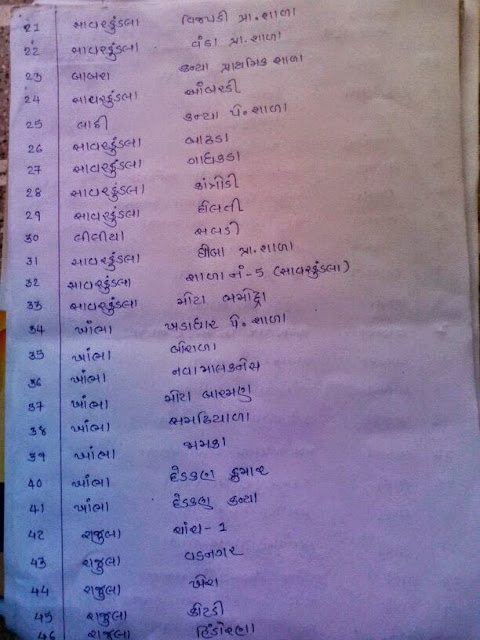 21 સાવરકુંડલા વિજપડી પ્રા. શાળા
22 સાવરકુંડલા વંડા પ્રા. શાળા
23 બાબરા કન્યા પ્રાથમિક શાળા
24 સાવરકુંડલા આંબરડી
25 લાઠી કન્યા પે. શાળા
26 સાવરકુંડલા બાઢડા
27 સાવરકુંડલા ગાધકડા
28 સાવરકુંડલા
29 સાવરકુંડલા
30 લીલીયા સલડી
31 સાવરકુંડલા ધોબા પ્રા. શાળા
32 સાવરકુંડલા શાળા નં-5 (સાવરકુંડલા)
33 સાવરકુંડલા મોટા ભમોદ્રા
34 ખાંભા ખડાધાર પે. શાળા
35 ખાંભા બોરાળા
36 ખાંભા નવા માલકનેસ
37 ખાંભા મોટા બારમણ
38 ખાંભા સમઢિયાળા
39 ખાંભા જામકા
40 ખાંભા ડેડકણ કુમાર
41 ખાંભા ડેડકણ કન્યા
42 રાજુલા ચાંચ-1
43 રાજુલા વડનગર
44 રાજુલા ખેરા
45 રાજુલા કોટડી
46 રાજુલા હિંડોરણા